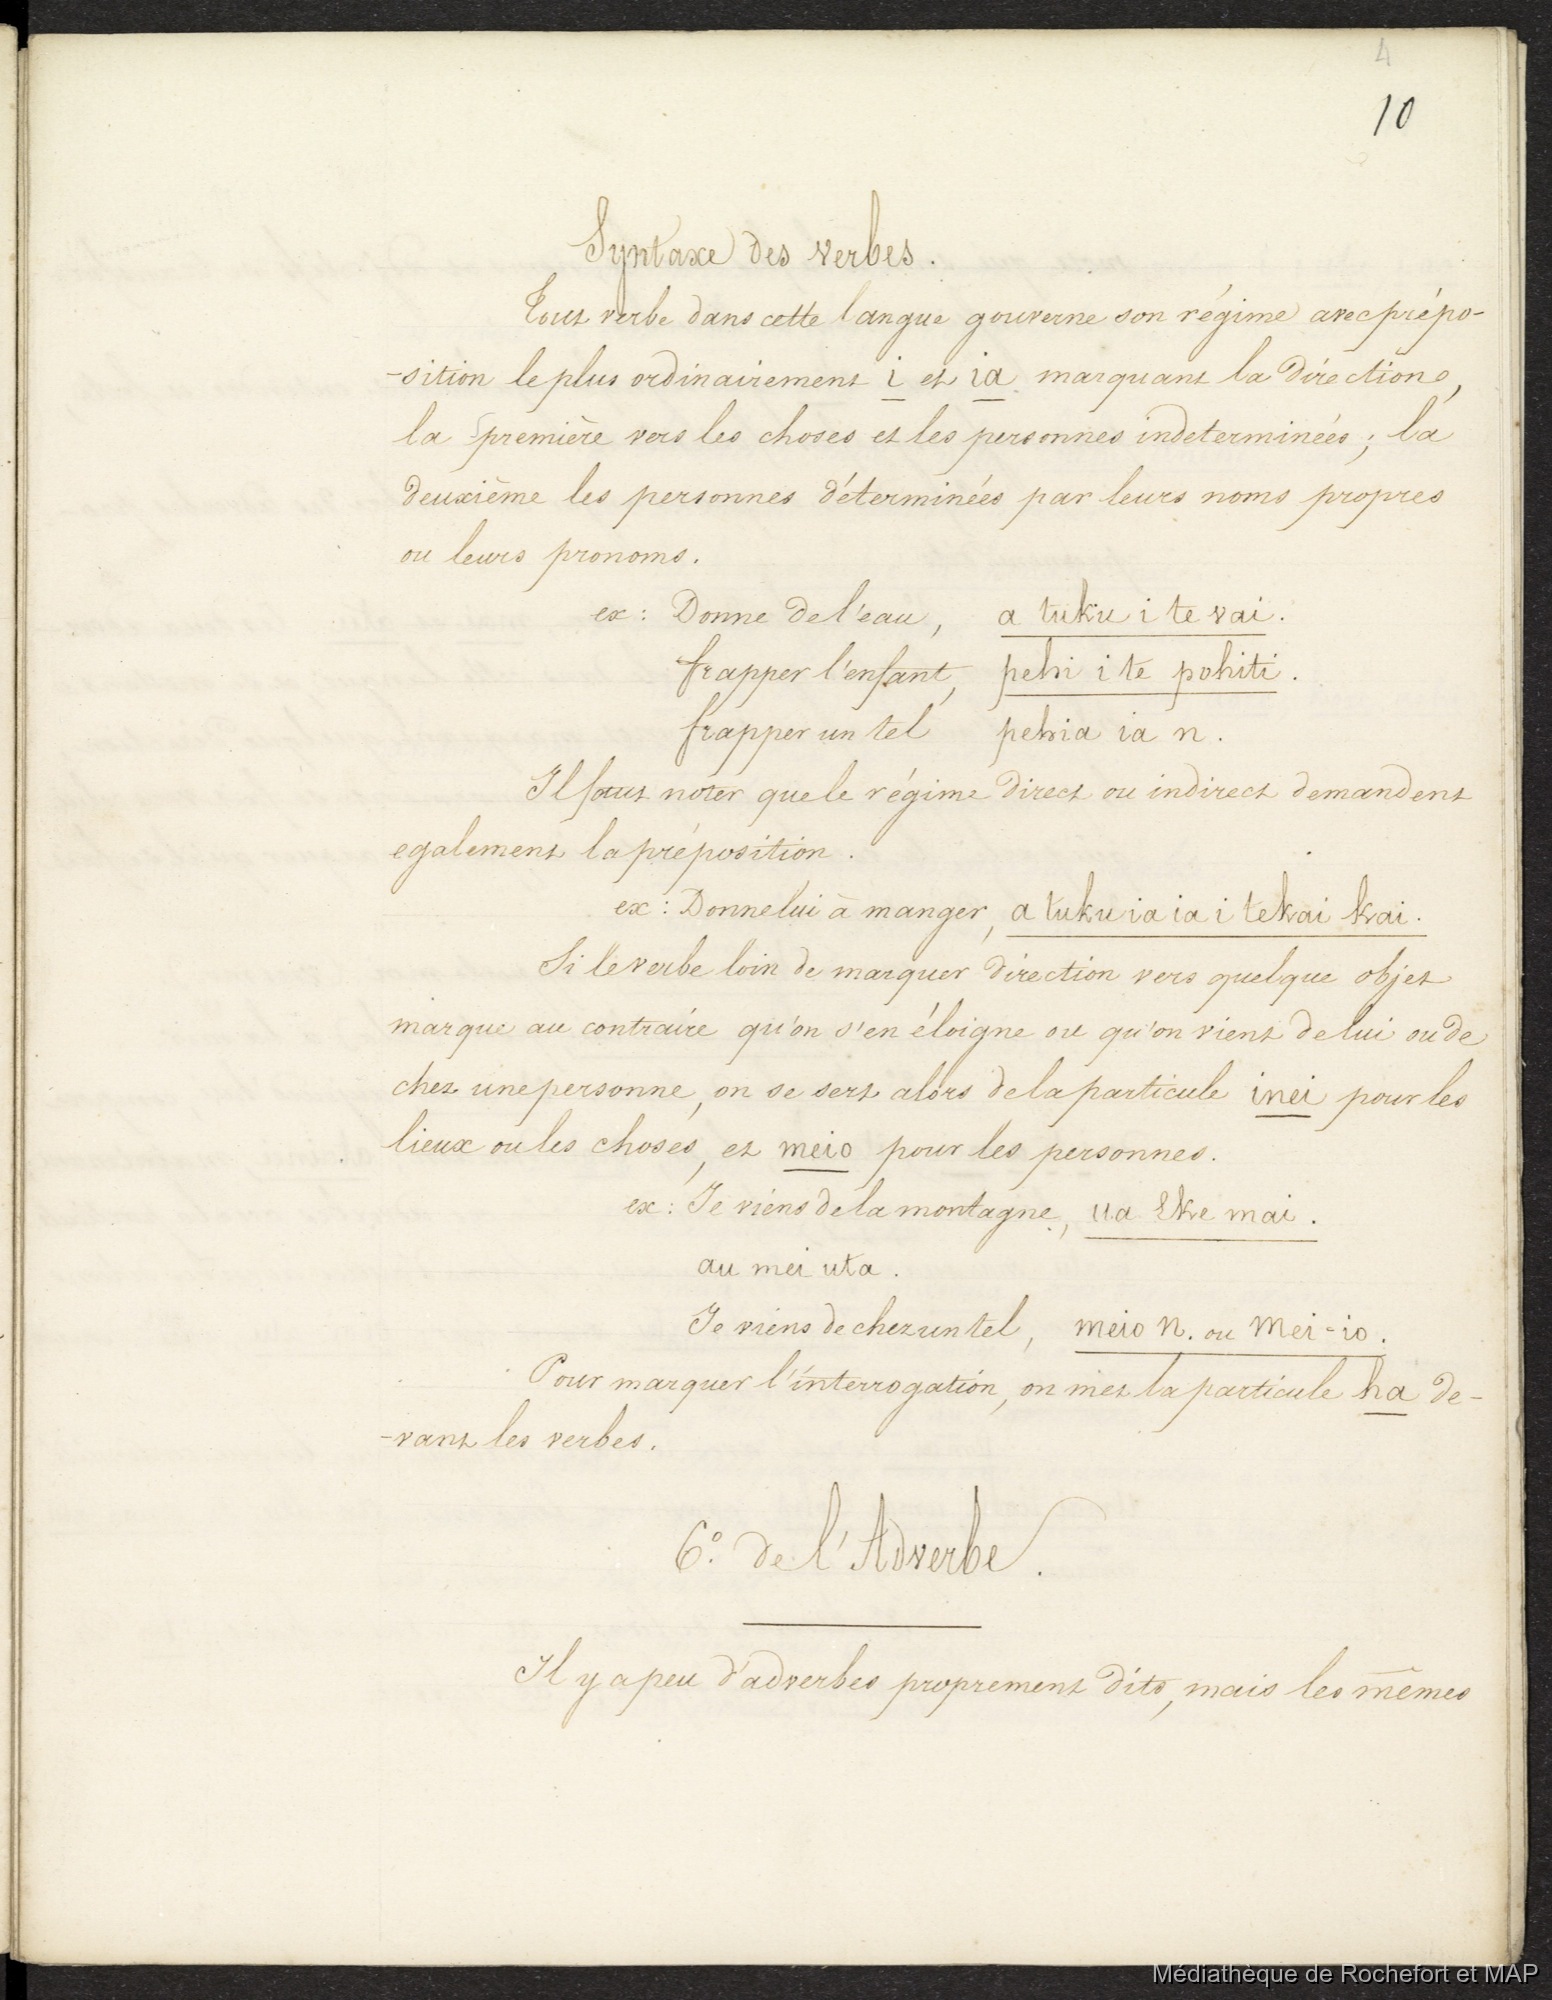 4
10
Syntaxe des verbes.
Tout verbe dans cette langue gouverne son régime avec prépo-
-sition le plus ordinairement i et ia marquant la direction,
la première vers les choses et les personnes indeterminées; la
deuxième les personnes déterminées par leurs noms propres
ou leurs pronoms.
ex: Donne de l'eau, a tuku i te vai.
frapper l'enfant, pehi i te pohiti.
frapper un tel pehia ia n.
Il faut noter que le régime direct ou indirect demandent
egalement la préposition.
ex: Donne lui à manger, a tuku ia ia i te kai kai.
Si le verbe loin de marquer direction vers quelque objet
marque au contraire qu'on s'en éloigne ou qu'on vient de lui ou de
chez une personne, on se sert alors de la particule inei pour les
lieux ou les choses, et meio pour les personnes.
ex: Je viens de la montagne, ua eke mai.
au mei uta.
Je viens de chez un tel, meio n. ou Mei-io.
Pour marquer l'interrogation, on met la particule ha de-
-vant les verbes.
6.° de l'Adverbe.
Il y a peu d'adverbes proprement dits, mais les mêmes
Médiathèque de Rochefort et MAP